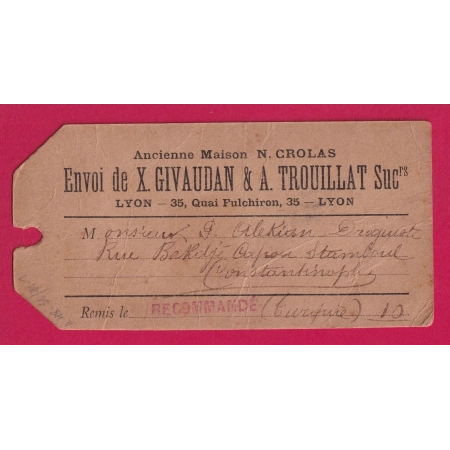 Ancienne Maison N. CROLAS
Envoi de X. GIVAUDAN & A. TROUILLAT Sucrs
LYON — 35, Quai Fulchiron, 35 — LYON
Monsieur Alekian Droguiste
Rue Capou Stamboul
Constantinople
Remis le RECOMMANDÉ (Turquie) 10